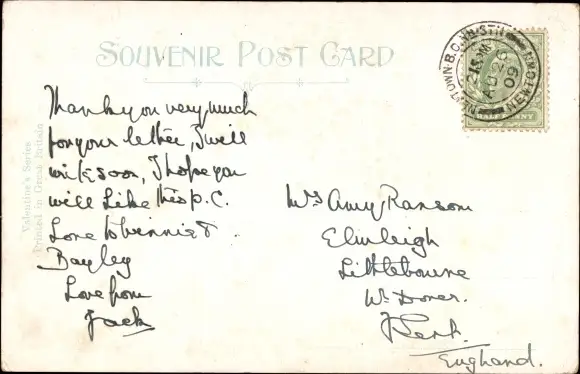 SOUVENIR POST CARD
Valentine's Series
Printed in Great Britain
Thank you very much
for your letter, I will
write soon, I hope you
will Like this p.c.
Love to &
Bayley
Love from
Jack
NEWTOWN.B.O.
2 15 PM
AU 26
09
HALFPENNY
Mrs Amy Ransom
Elmleigh
Littlebourne
Nr Dover.
Kent.
England.